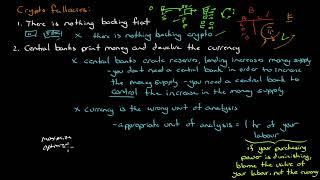 Crypto fallacies:
1. There is nothing backing fiat
x there is nothing backing crypto
2. Central banks print money and devalue the currency
x central banks create reserves, lending increases money supply
- you don't need a central bank in order to increase
the money supply - you need a central bank to
control the increase in the money supply
x currency is the wrong unit of analysis
- appropriate unit of analysis = 1 hr of your
labour
if your purchasing
power is diminishing,
blame the value of
your labour, not the currency
maximize